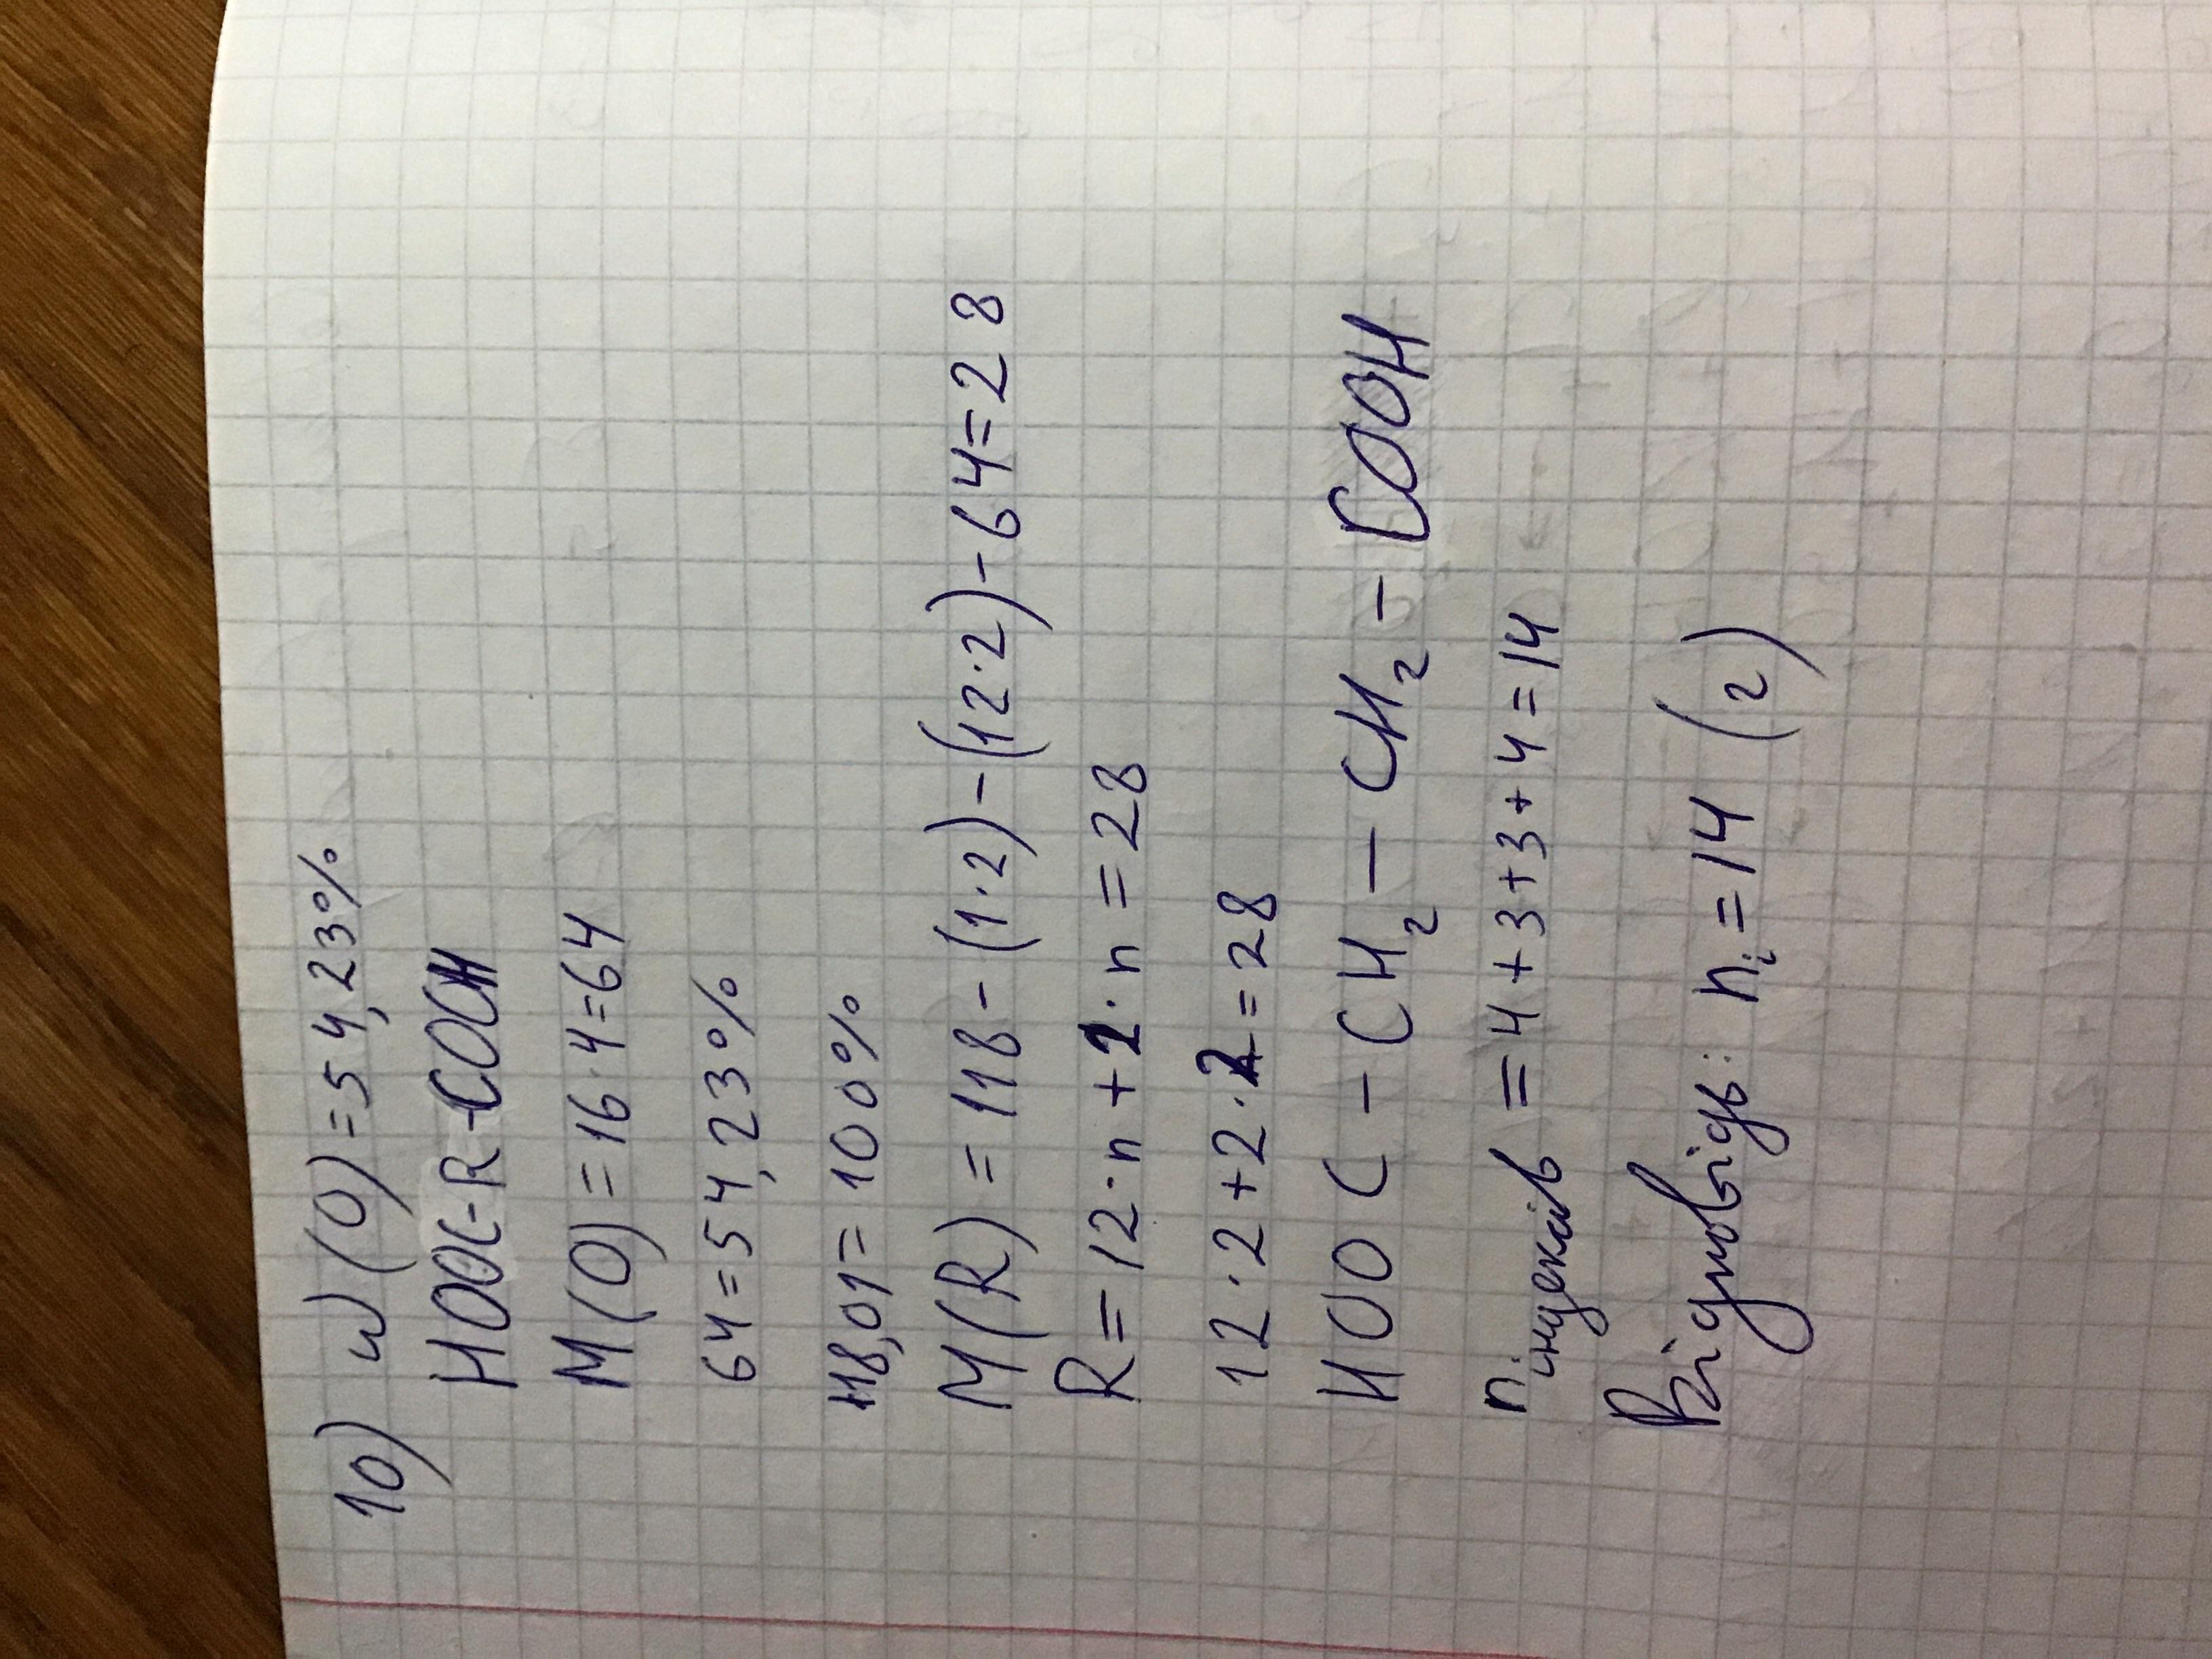 10) w(O)=54,23%
HOOC-R-COOH
M(O)=16·4=64
64=54,23%
118,01=100%
M(R)=118-(1·2)-(12·2)-64=28
R=12·n+2·n=28
12·2+2·2=28
HOOC-CH₂-CH₂-COOH
nіндексів=4+3+3+4=14
Відповідь: nᵢ=14 (г)